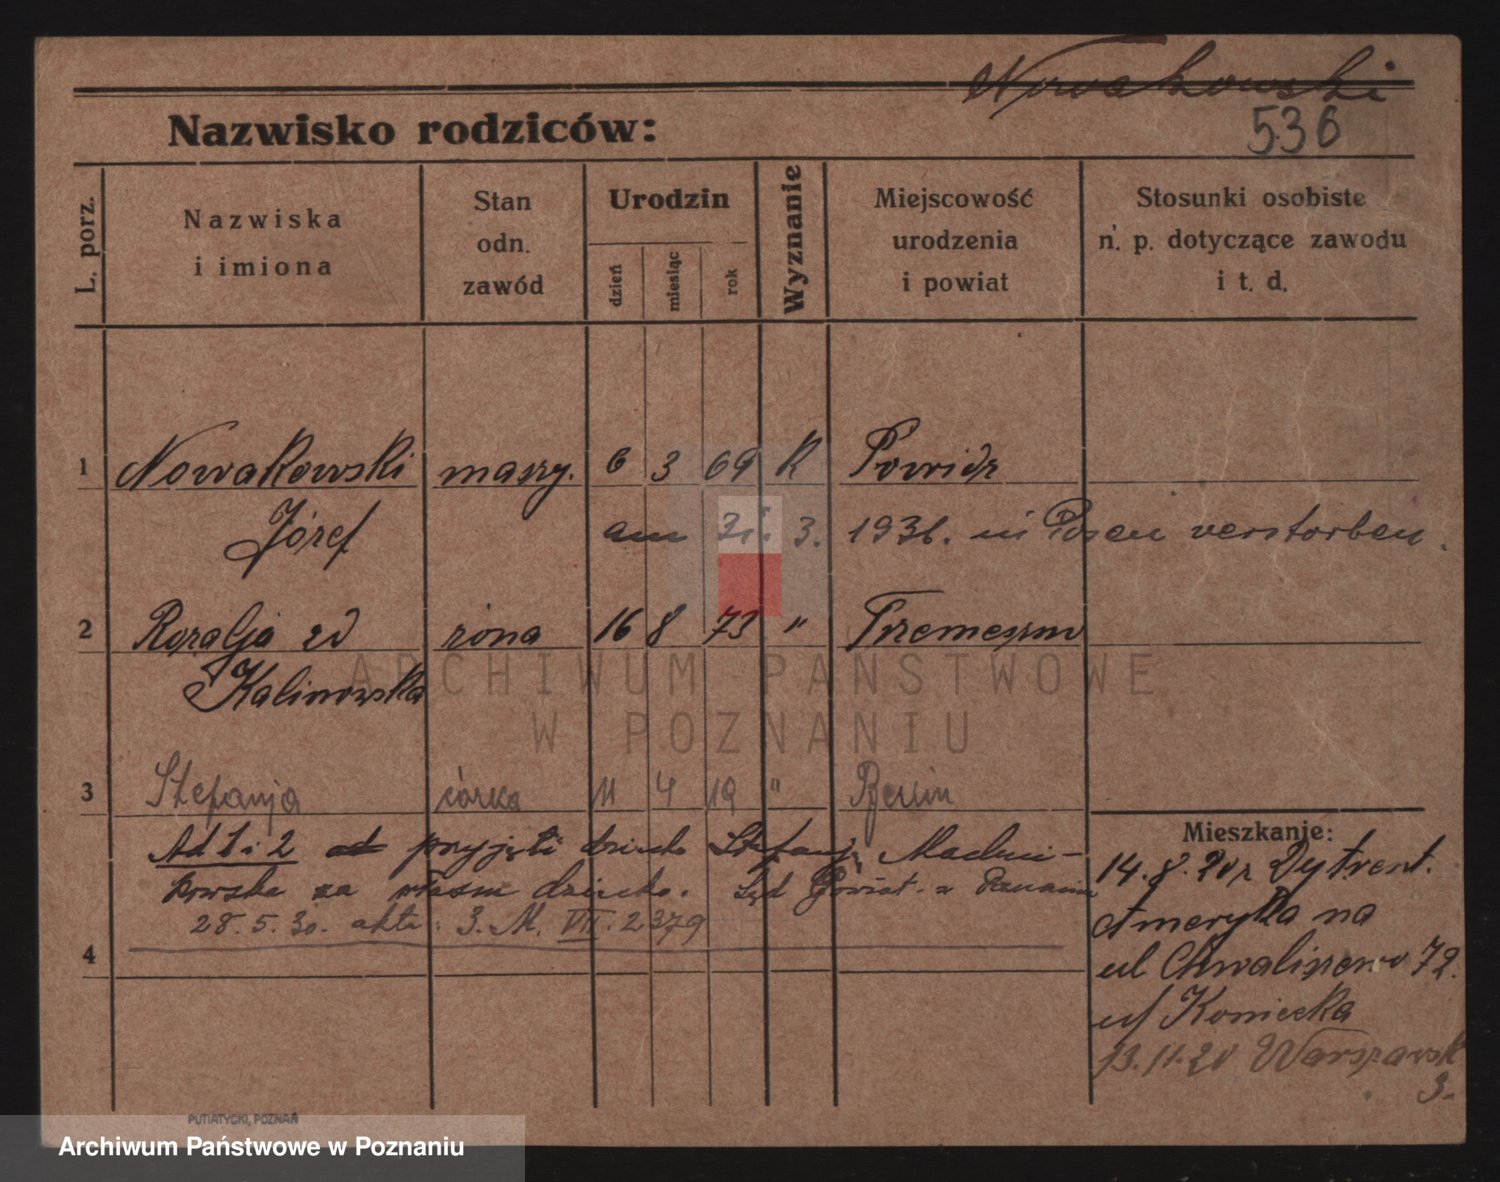 Nowakowski
536
Nazwisko rodziców:
L. porz.
Nazwiska
i imiona
Stan
odn.
zawód
Urodzin
dzień
miesiąc
rok
Wyznanie
Miejscowość
urodzenia
i powiat
Stosunki osobiste
n. p. dotyczące zawodu
i t. d.
1 Nowakowski maszy. 6 3 69 K Powidz
Józef am 31. 3. 1936. in Posen verstorben.
2 Rozalja zd żona 16 8 73 " Trzemeszno
Kalinowska
ARCHIWUM PAŃSTWOWE
W POZNANIU
3 Stefanja córka 11 4 19 " Berlin
Ad 1 i 2 przyjęli dziecko Stefanję
kowska za własne dziecko. Sąd Powiat. w Poznaniu
28. 5. 30. akta: 3. M. VII. 2379
4
Mieszkanie:
14. 8. 20 z
Ameryka na
ul Chwaliszewo 72.
u/ Koniecka
13. 11. 20 Warszawsk
3.
PUTIATYCKI, POZNAŃ
Archiwum Państwowe w Poznaniu